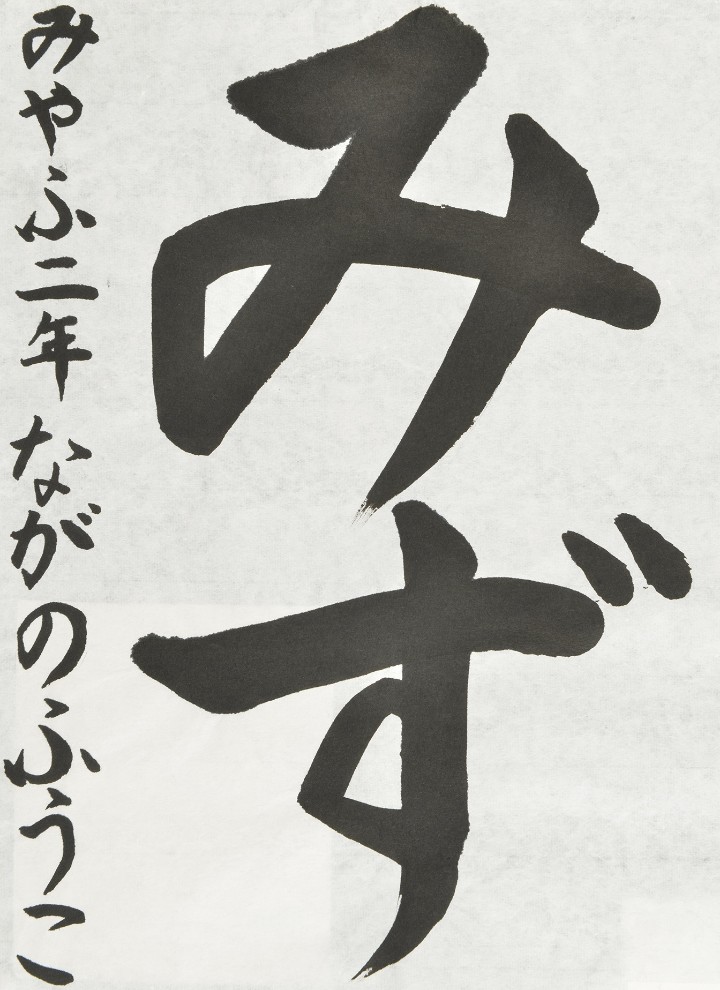 みず
みやふ二年 ながのふうこ